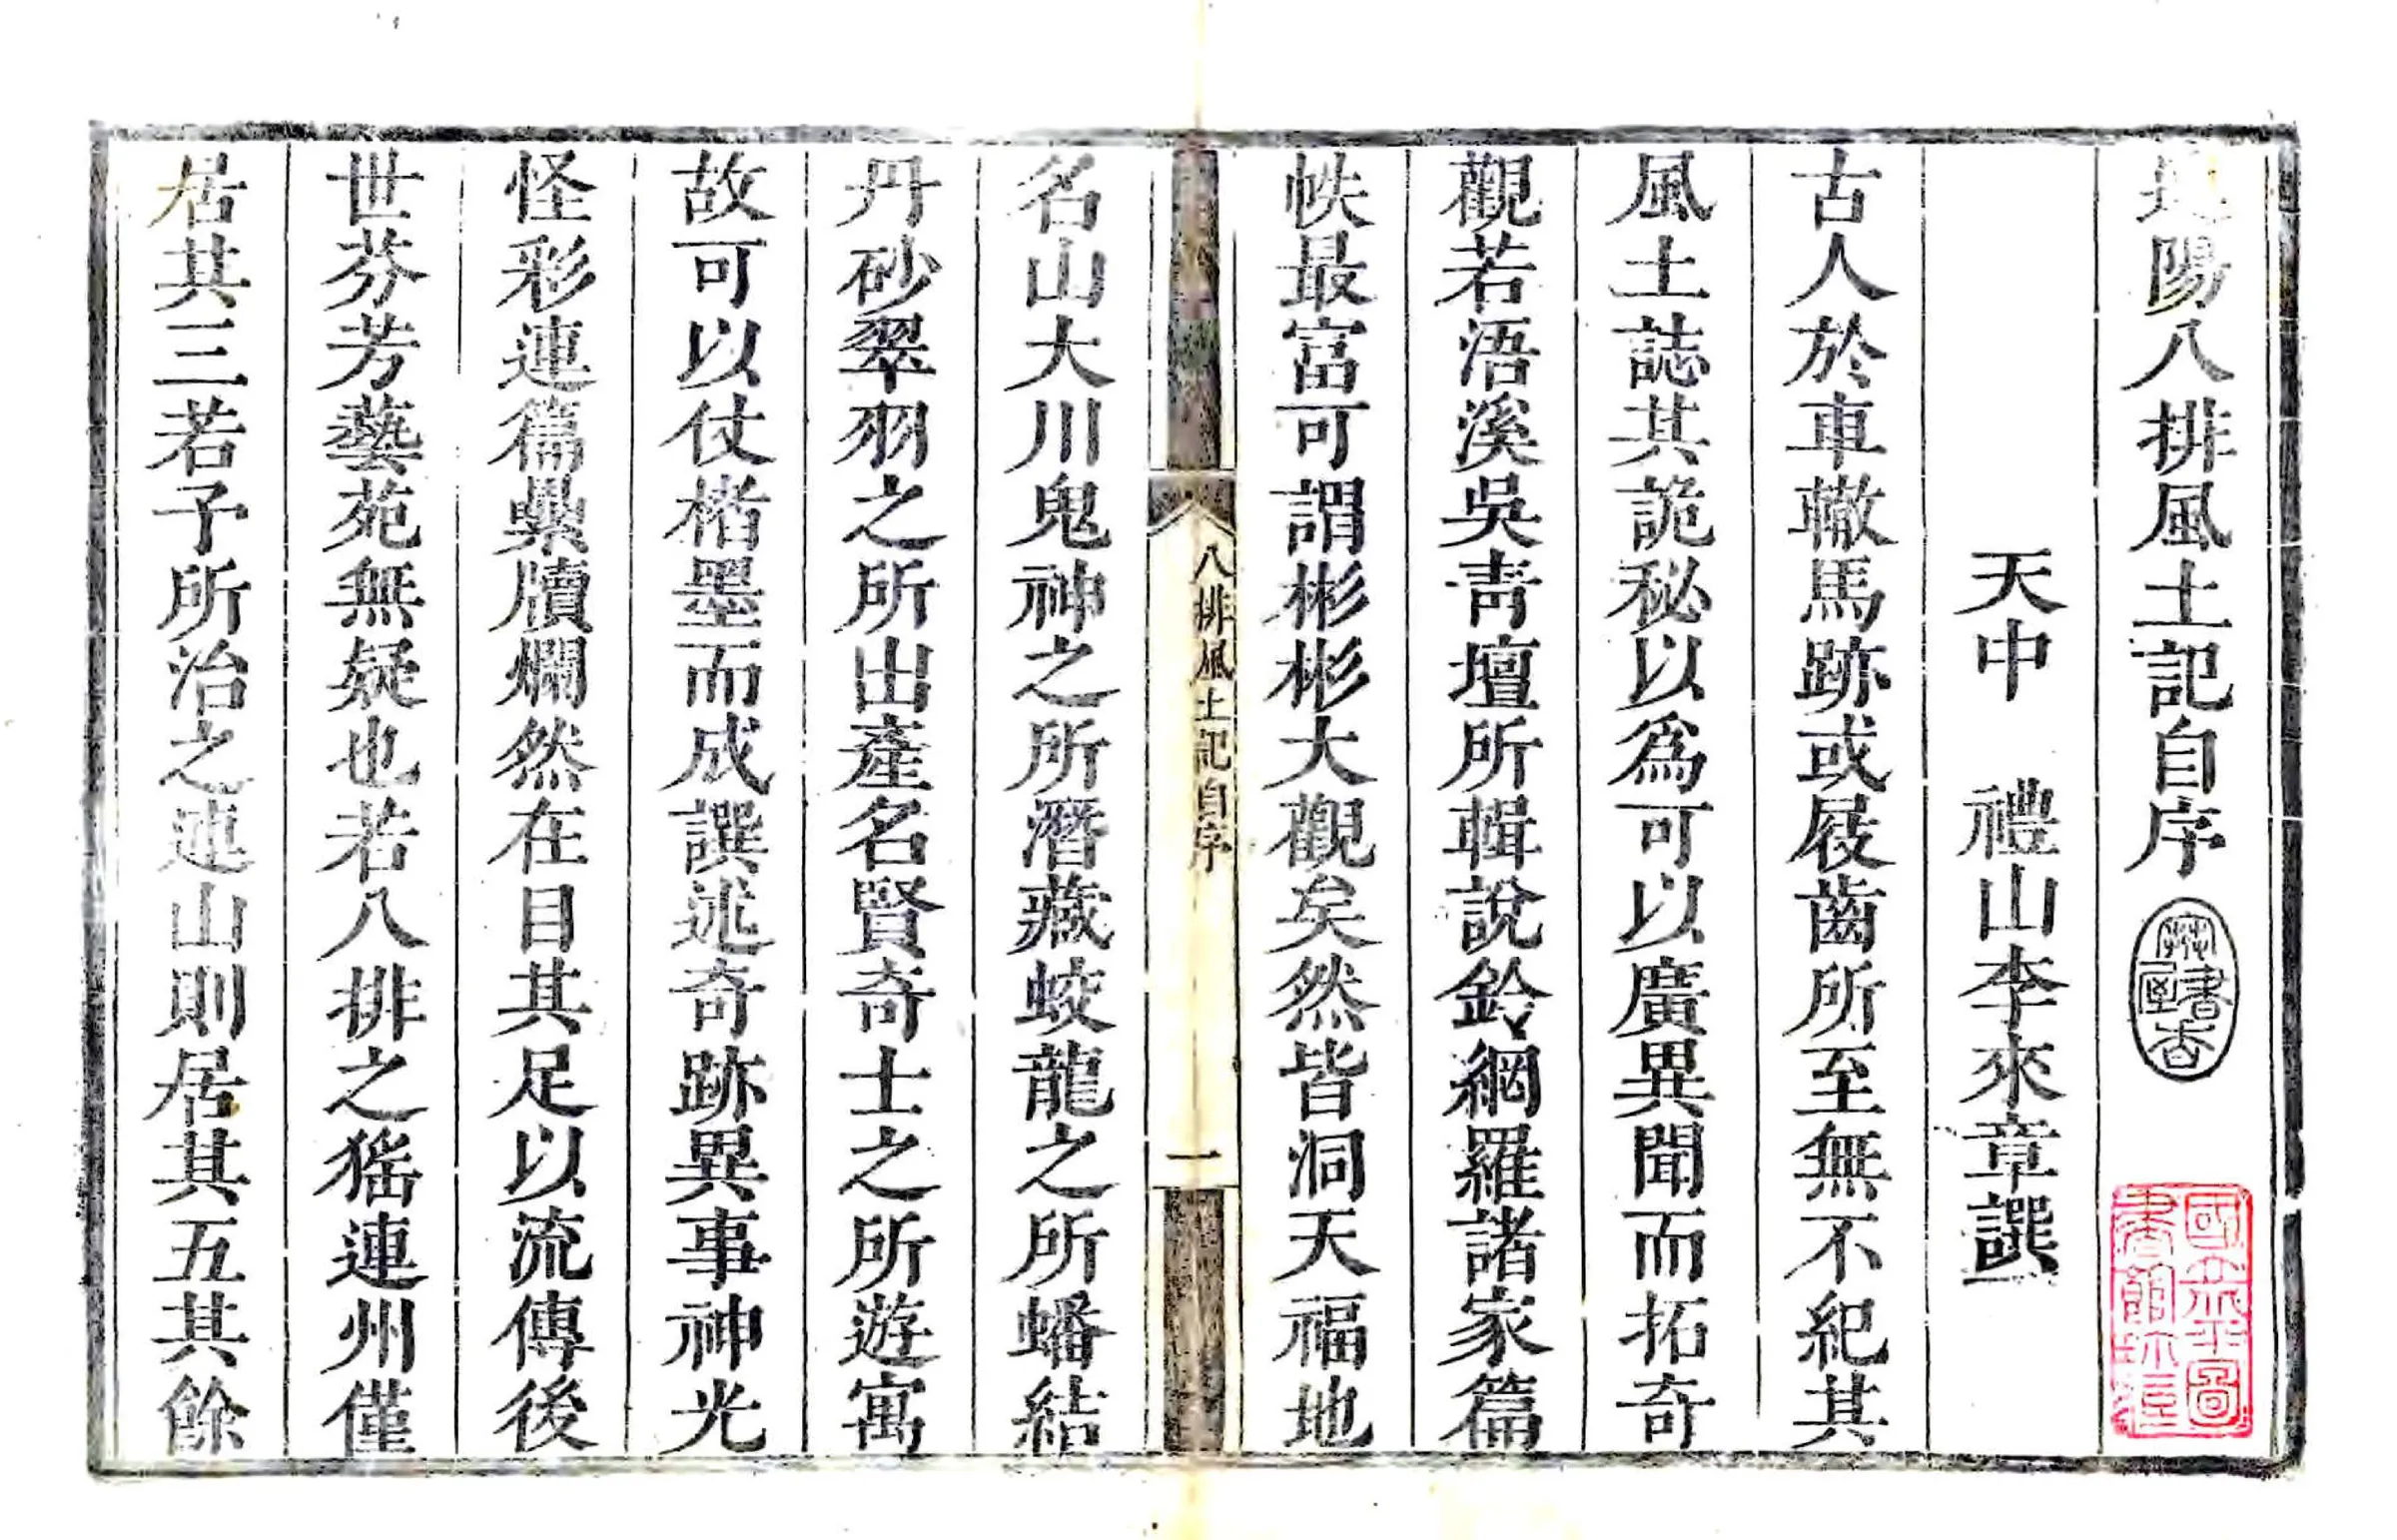 連陽八排風土記自序
天中 禮山李來章譔
古人於車轍馬跡或屐齒所至無不紀其
風土誌其詭秘以爲可以廣異聞而拓奇
觀若浯溪吳靑壇所輯說鈴網羅諸家篇
帙最富可謂彬彬大觀矣然皆洞天福地
八排風土記自序
一
名山大川鬼神之所潛藏蛟龍之所蟠結
丹砂翠羽之所出產名賢奇士之所遊寓
故可以仗楮墨而成譔述奇跡異事神光
怪彩連篇纍牘爛然在目其足以流傳後
世芬芳藝苑無疑也若八排之猺連州僅
居其三若予所治之連山則居其五其餘